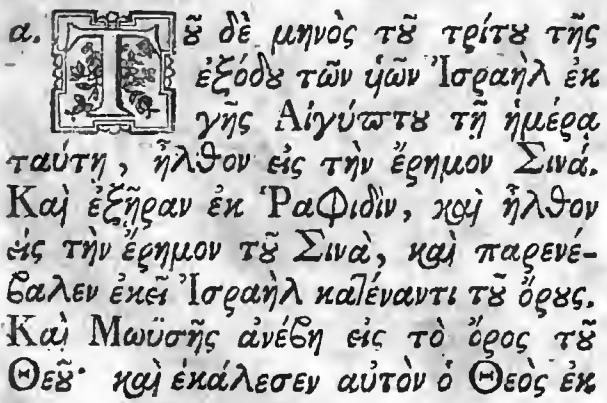 α. Τοῦ δὲ μηνὸς τοῦ τρίτου τῆς
ἐξόδου τῶν ὑῶν Ἰσραὴλ ἐκ
γῆς Αἰγύπτου τῇ ἡμέρᾳ
ταύτῃ, ἦλθον εἰς τὴν ἔρημον Σινά.
Καὶ ἐξῆραν ἐκ Ῥαφιδὶν, καὶ ἦλθον
εἰς τὴν ἔρημον τοῦ Σινὰ, καὶ παρενέ-
βαλεν ἐκεῖ Ἰσραὴλ κατέναντι τοῦ ὄρους.
Καὶ Μωϋσῆς ἀνέβη εἰς τὸ ὄρος τοῦ
Θεοῦ· καὶ ἐκάλεσεν αὐτὸν ὁ Θεὸς ἐκ